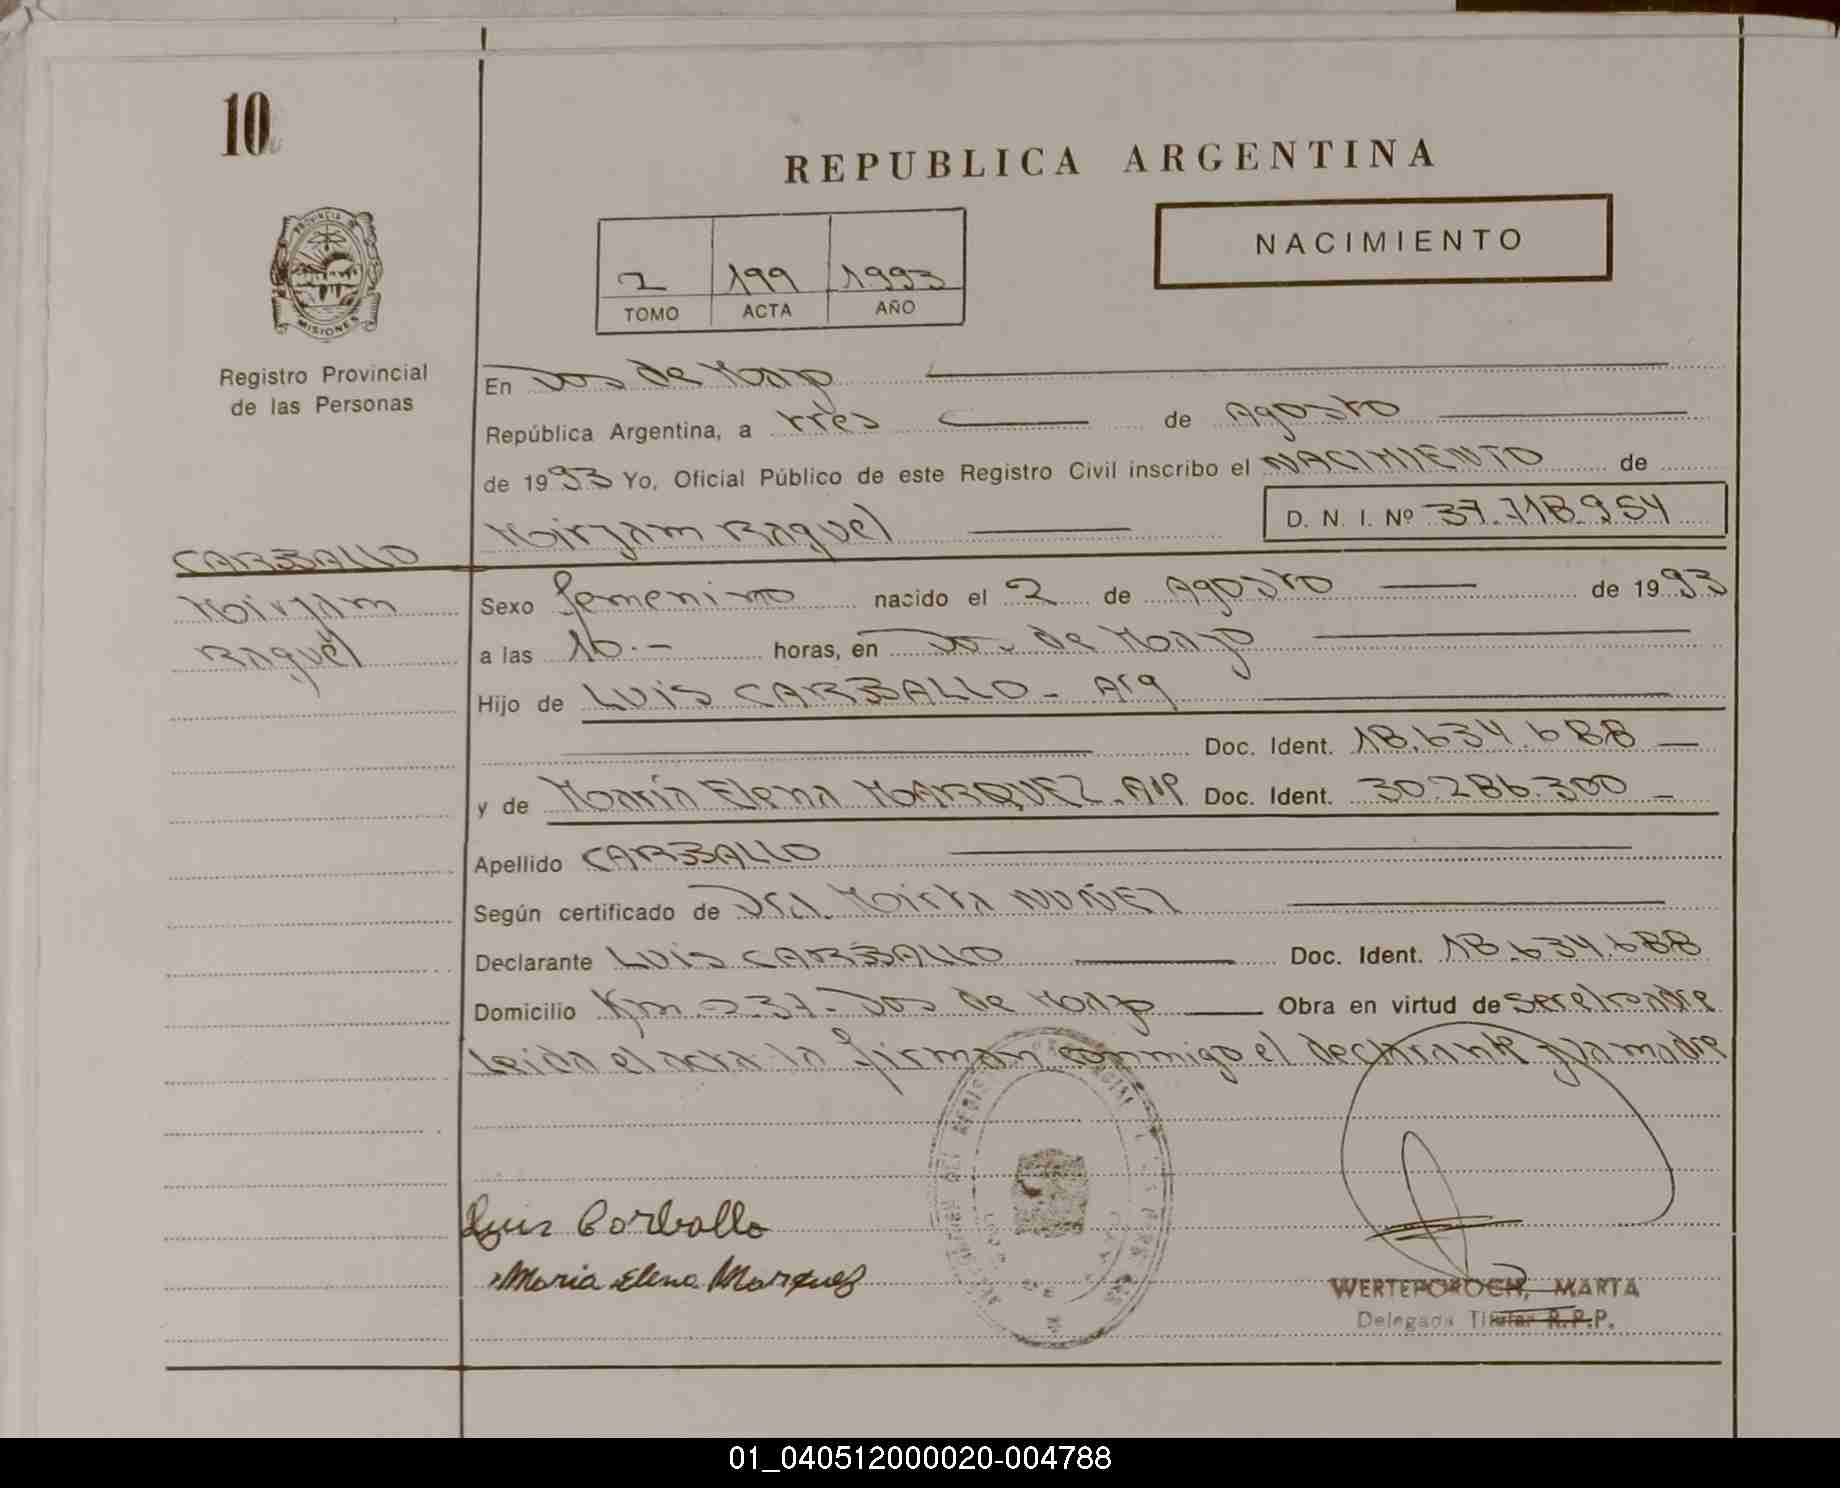 10
REPUBLICA ARGENTINA
PROVINCIA DE
MISIONES
2 199 1993
TOMO ACTA AÑO
NACIMIENTO
Registro Provincial
de las Personas
En Dos de Mayo
República Argentina, a tres de Agosto
de 1993 Yo, Oficial Público de este Registro Civil inscribo el NACIMIENTO de
Miryam Raquel D. N. I. Nº 37.718.954
CARBALLO
Miryam
Raquel
Sexo femenino nacido el 2 de Agosto de 1993
a las 10.- horas, en Dos de Mayo
Hijo de LUIS CARBALLO - Arg
Doc. Ident. 18.634.688
y de María Elena MARQUEZ - Arg Doc. Ident. 30.286.300
Apellido CARBALLO
Según certificado de Dra. Mirta NUÑEZ
Declarante LUIS CARBALLO Doc. Ident. 18.634.688
Domicilio Km 237 - Dos de Mayo Obra en virtud de ser el padre
Leida el acta la firman conmigo el declarante y la madre
Luis Carballo
Maria Elena Marquez
WERTEPOROCH, MARTA
Delegada Titular R.P.P.
01_040512000020-004788